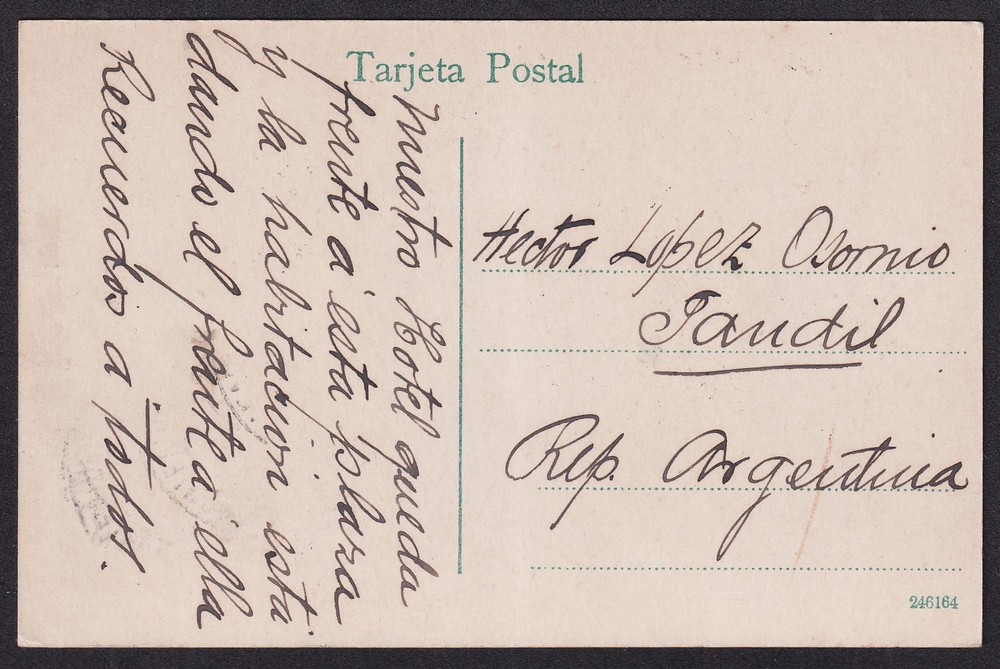 Tarjeta Postal
Nuestro Hotel queda
frente á ésta plaza
y la habitacion está
dando el frente a ella
Recuerdos a todos.
Hector Lopez Osornio
Tandil
Rep. Argentina
246164